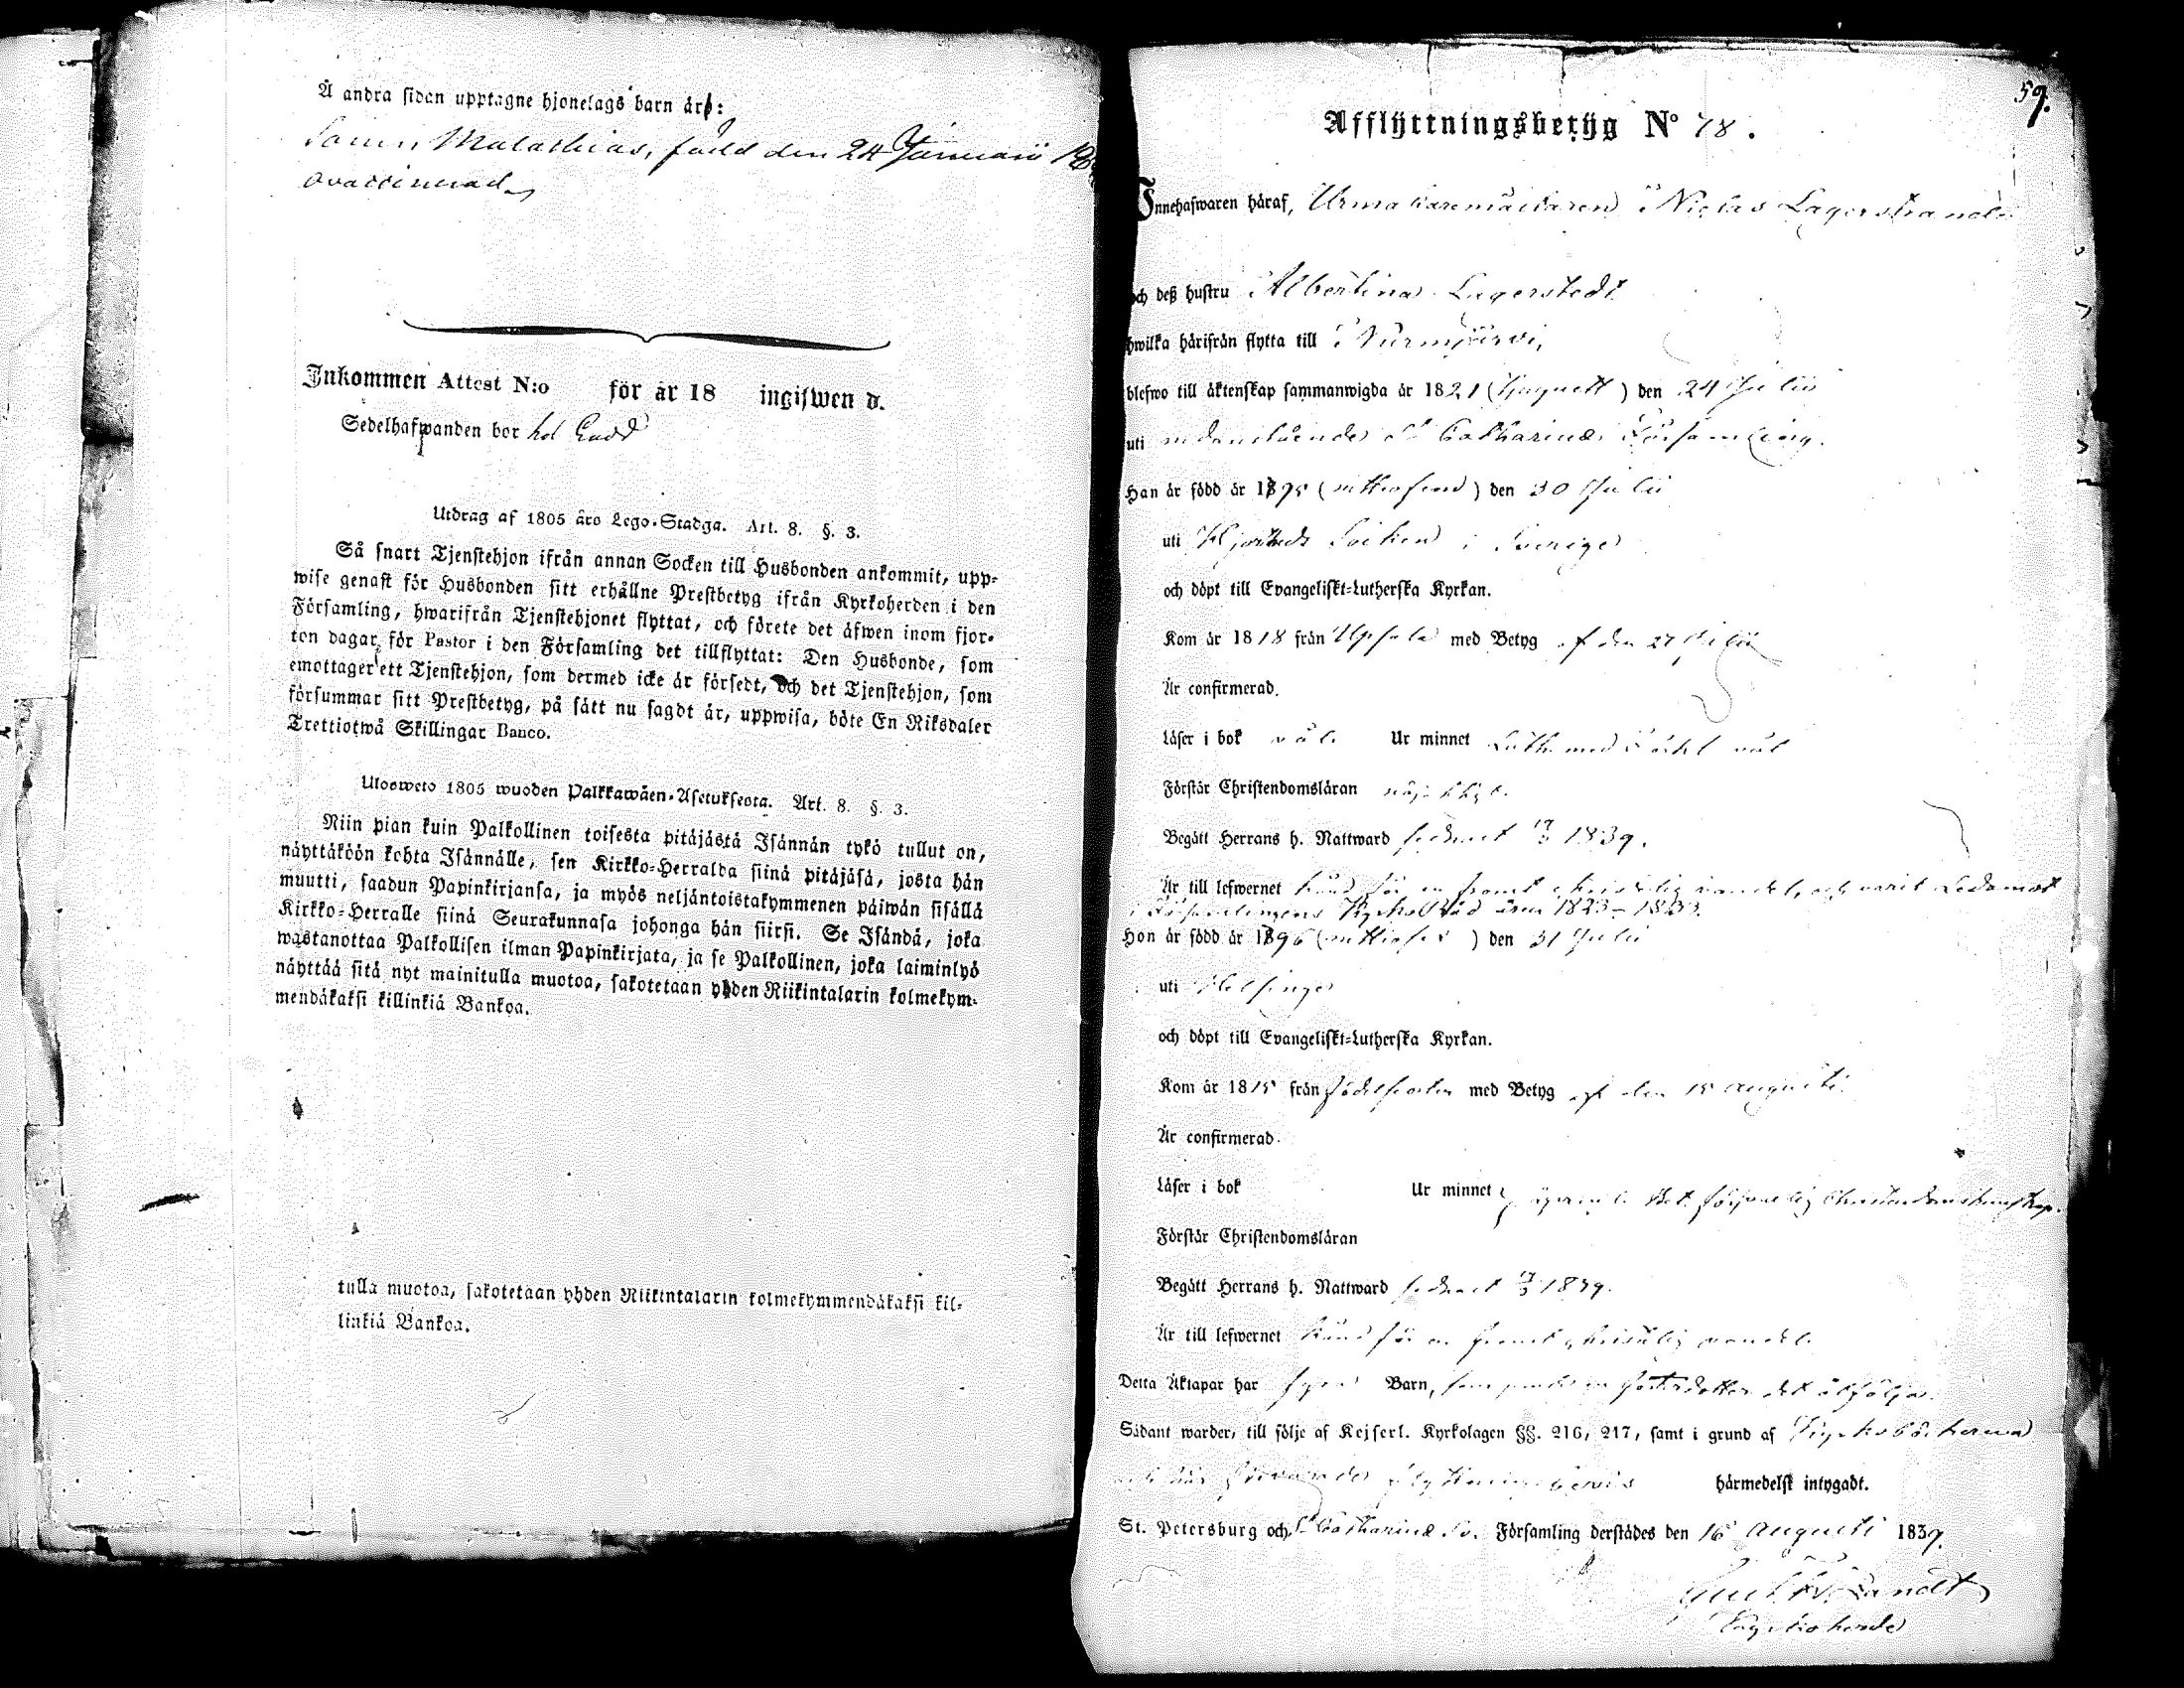 Å andra sidan upptagne hjonelags barn äro:
Sonen Malachias, född den 24 Januarii
ovaccinerad
Inkommen Attest N:o för år 18 ingifwen d.
Sedelhafwanden bor hos
Utdrag af 1805 års Lego-Stadga. Art. 8. §. 3.
Så snart Tjenstehjon ifrån annan Socken till Husbonden ankommit, upp-
wise genast för Husbonden sitt erhållne Prestbetyg ifrån Kyrkoherden i den
Församling, hwarifrån Tjenstehjonet flyttat, och förete det äfwen inom fjor-
ton dagar för Pastor i den Församling det tillflyttat: Den Husbonde, som
emottager ett Tjenstehjon, som dermed icke är försedt, och det Tjenstehjon, som
försummar sitt Prestbetyg, på sätt nu sagdt är, uppwisa, böte En Riksdaler
Trettiotwå Skillingar Banco.
Ulosweto 1805 wuoden Palkkawäen-Asetuksesta. Art. 8. §. 3.
Niin pian kuin Palkollinen toisesta pitäjästä Isännän tykö tullut on,
näyttäköön kohta Isännälle, sen Kirkko-Herralda siinä pitäjäsä, josta hän
muutti, saadun Papinkirjansa, ja myös neljäntoistakymmenen päiwän sisällä
Kirkko-Herralle siinä Seurakunnasa johonga hän siirsi. Se Isändä, joka
wastanottaa Palkollisen ilman Papinkirjata, ja se Palkollinen, joka laiminlyö
näyttää sitä nyt mainitulla muotoa, sakotetaan yhden Riikintalarin kolmekym-
mendäkaksi killinkiä Bankoa.
tulla muotoa, sakotetaan yhden Riikintalarin kolmekymmendäkaksi kil-
linkiä Bankoa.
59.
Afflyttningsbetyg No 78.
Innehafwaren häraf, Urmakaremästaren Niclas Lagerstrand
och deß hustru Albertina Lagerstedt
hwilka härifrån flytta till Nurmijärvi,
blefwo till äktenskap sammanwigda år 1821 (tjuguett) den 24 Julii
uti nedanstående St Catharinæ Församling.
Han är född år 1795 (nittiofem) den 30 Julii
uti Hjorteds Socken i Sverige
och döpt till Evangeliskt-Lutherska Kyrkan.
Kom år 1818 från Upsala med Betyg af den 27 Julii
Är confirmerad.
Läser i bok väl. Ur minnet Luth. med väl
Förstår Christendomsläran nöjaktigt.
Begått Herrans h. Nattward sednast 17/3 1839.
Är till lefwernet känd för en from christelig vandel, och varit Ledamot
i Församlingens Kyrkoråd åren 1823–1833.
Hon är född år 1796 (nittiosex) den 31 Julii
uti Helsinge
och döpt till Evangeliskt-Lutherska Kyrkan.
Kom år 1815 från födelseorten med Betyg af den 15 Augusti.
Är confirmerad.
Läser i bok Ur minnet äger en berömlig Christendomskunskap.
Förstår Christendomsläran
Begått Herrans h. Nattward sednast 17/3 1839.
Är till lefwernet känd för en from christelig vandel.
Detta Äktapar har fyra Barn, som jemte en fosterdotter det åtfölja.
Sådant warder, till följe af Kejserl. Kyrkolagen §§. 216, 217, samt i grund af Kyrkoböckerna
härmedelst intygadt.
St. Petersburg och St Catharinæ Sv. Församling derstädes den 16 Augusti 1839.
Kyrkoherde